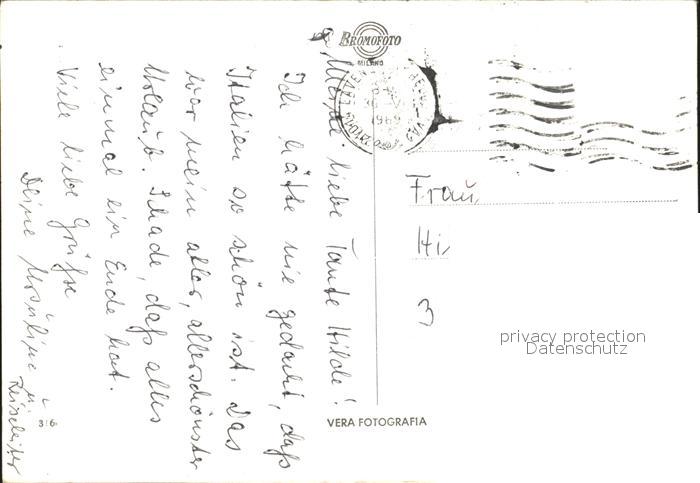 BROMOFOTO
MILANO
Meine liebe Tante Hilde!
Ich hätte nie gedacht, daß
Italien so schön ist. Das
war mein aller, allerschönster
Urlaub. Schade, daß alles
einmal ein Ende hat.
Viele liebe Grüße
Deine
Frau
Hi
3
privacy protection
Datenschutz
VERA FOTOGRAFIA